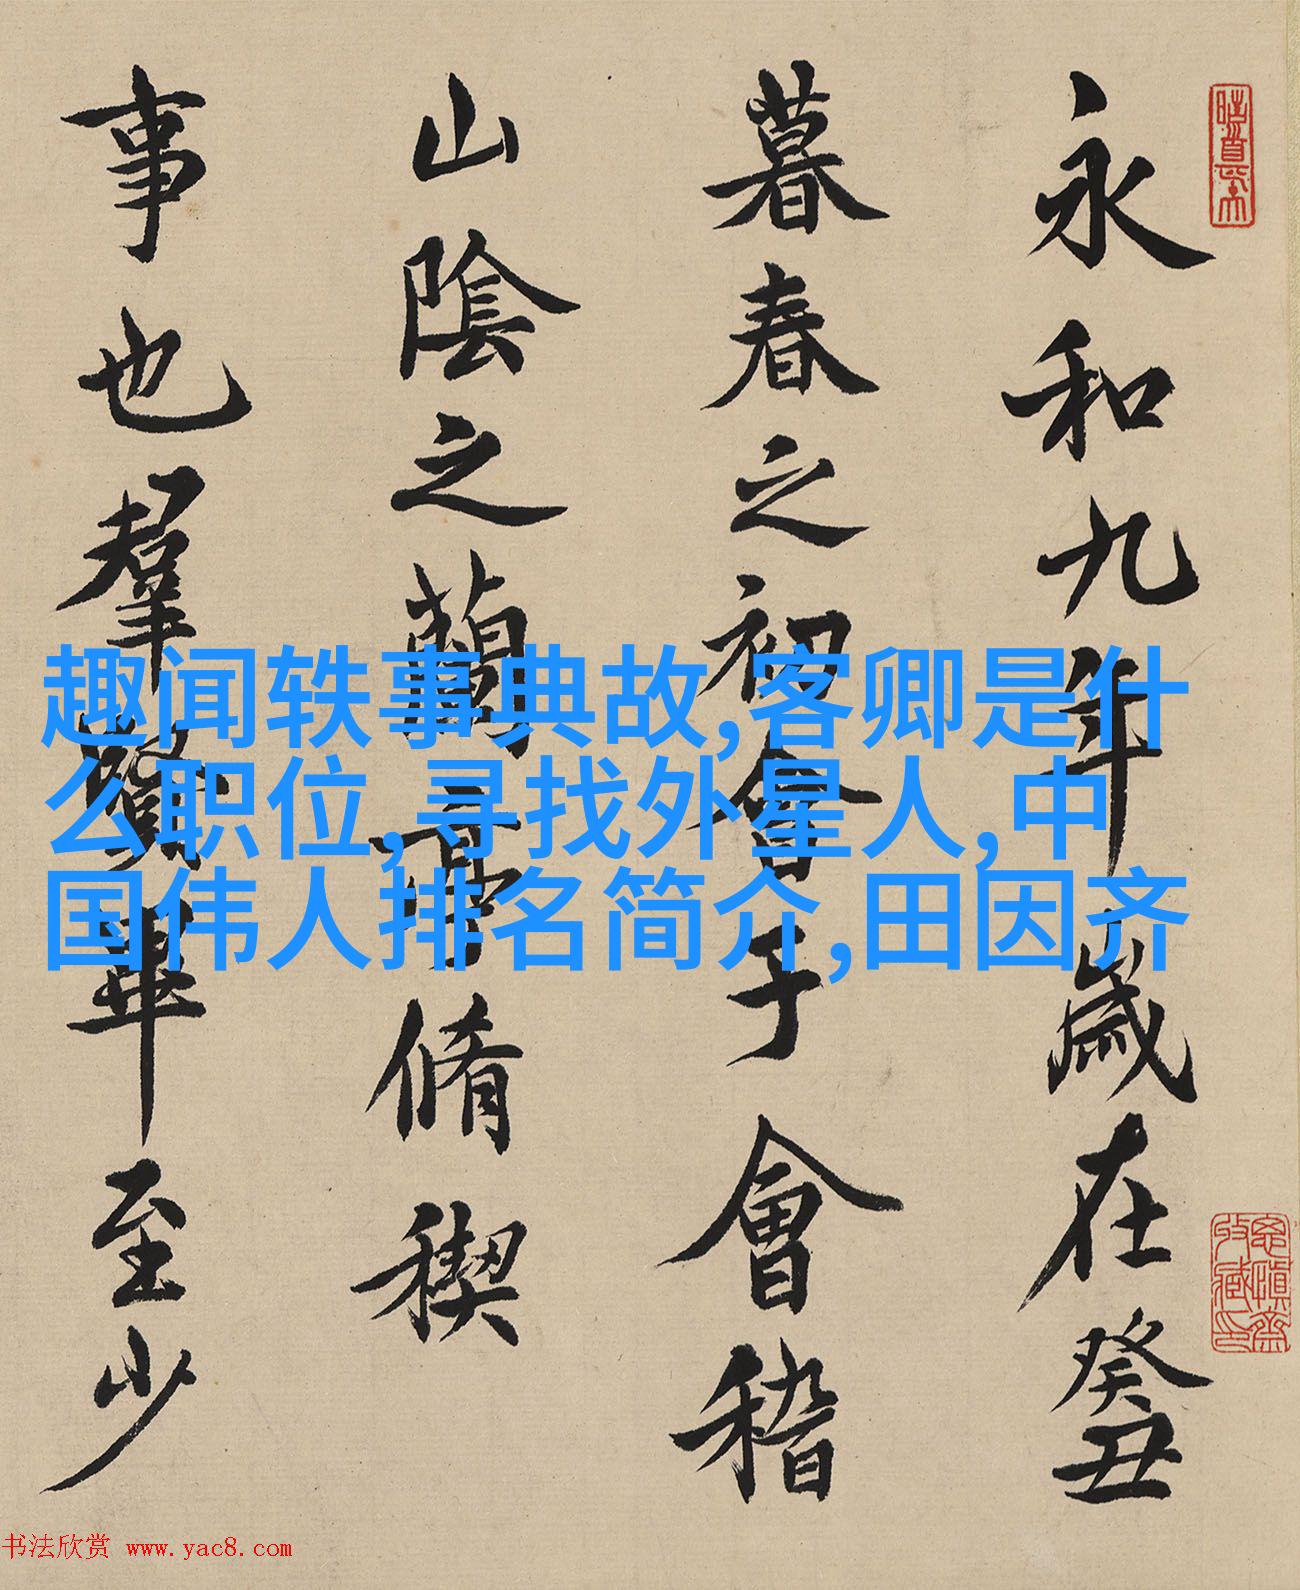 永和九年歲在癸丑
暮春之初會于會稽
山陰之蘭亭脩稧
事也羣賢畢至少
趣闻轶事典故,客卿是什
么职位,寻找外星人,中
国伟人排名简介,田因齐
书法欣赏 www.yac8.com